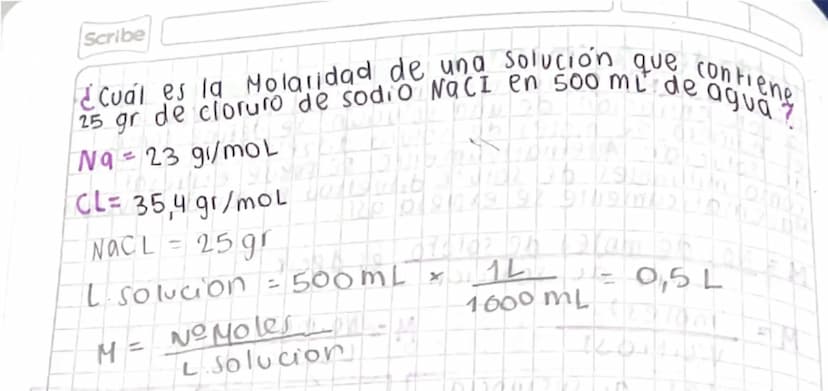 Scribe
¿Cuál es la Molaridad de una solución que contiene
25 gr de cloruro de sodio NaCl en 500 mL de agua?
Na = 23 gr/moL
CL= 35,4 gr/moL
NaCL = 25 gr
L. solucion = 500mL × 1L / 1000 mL = 0,5 L
M = Nº Moles / L solucion